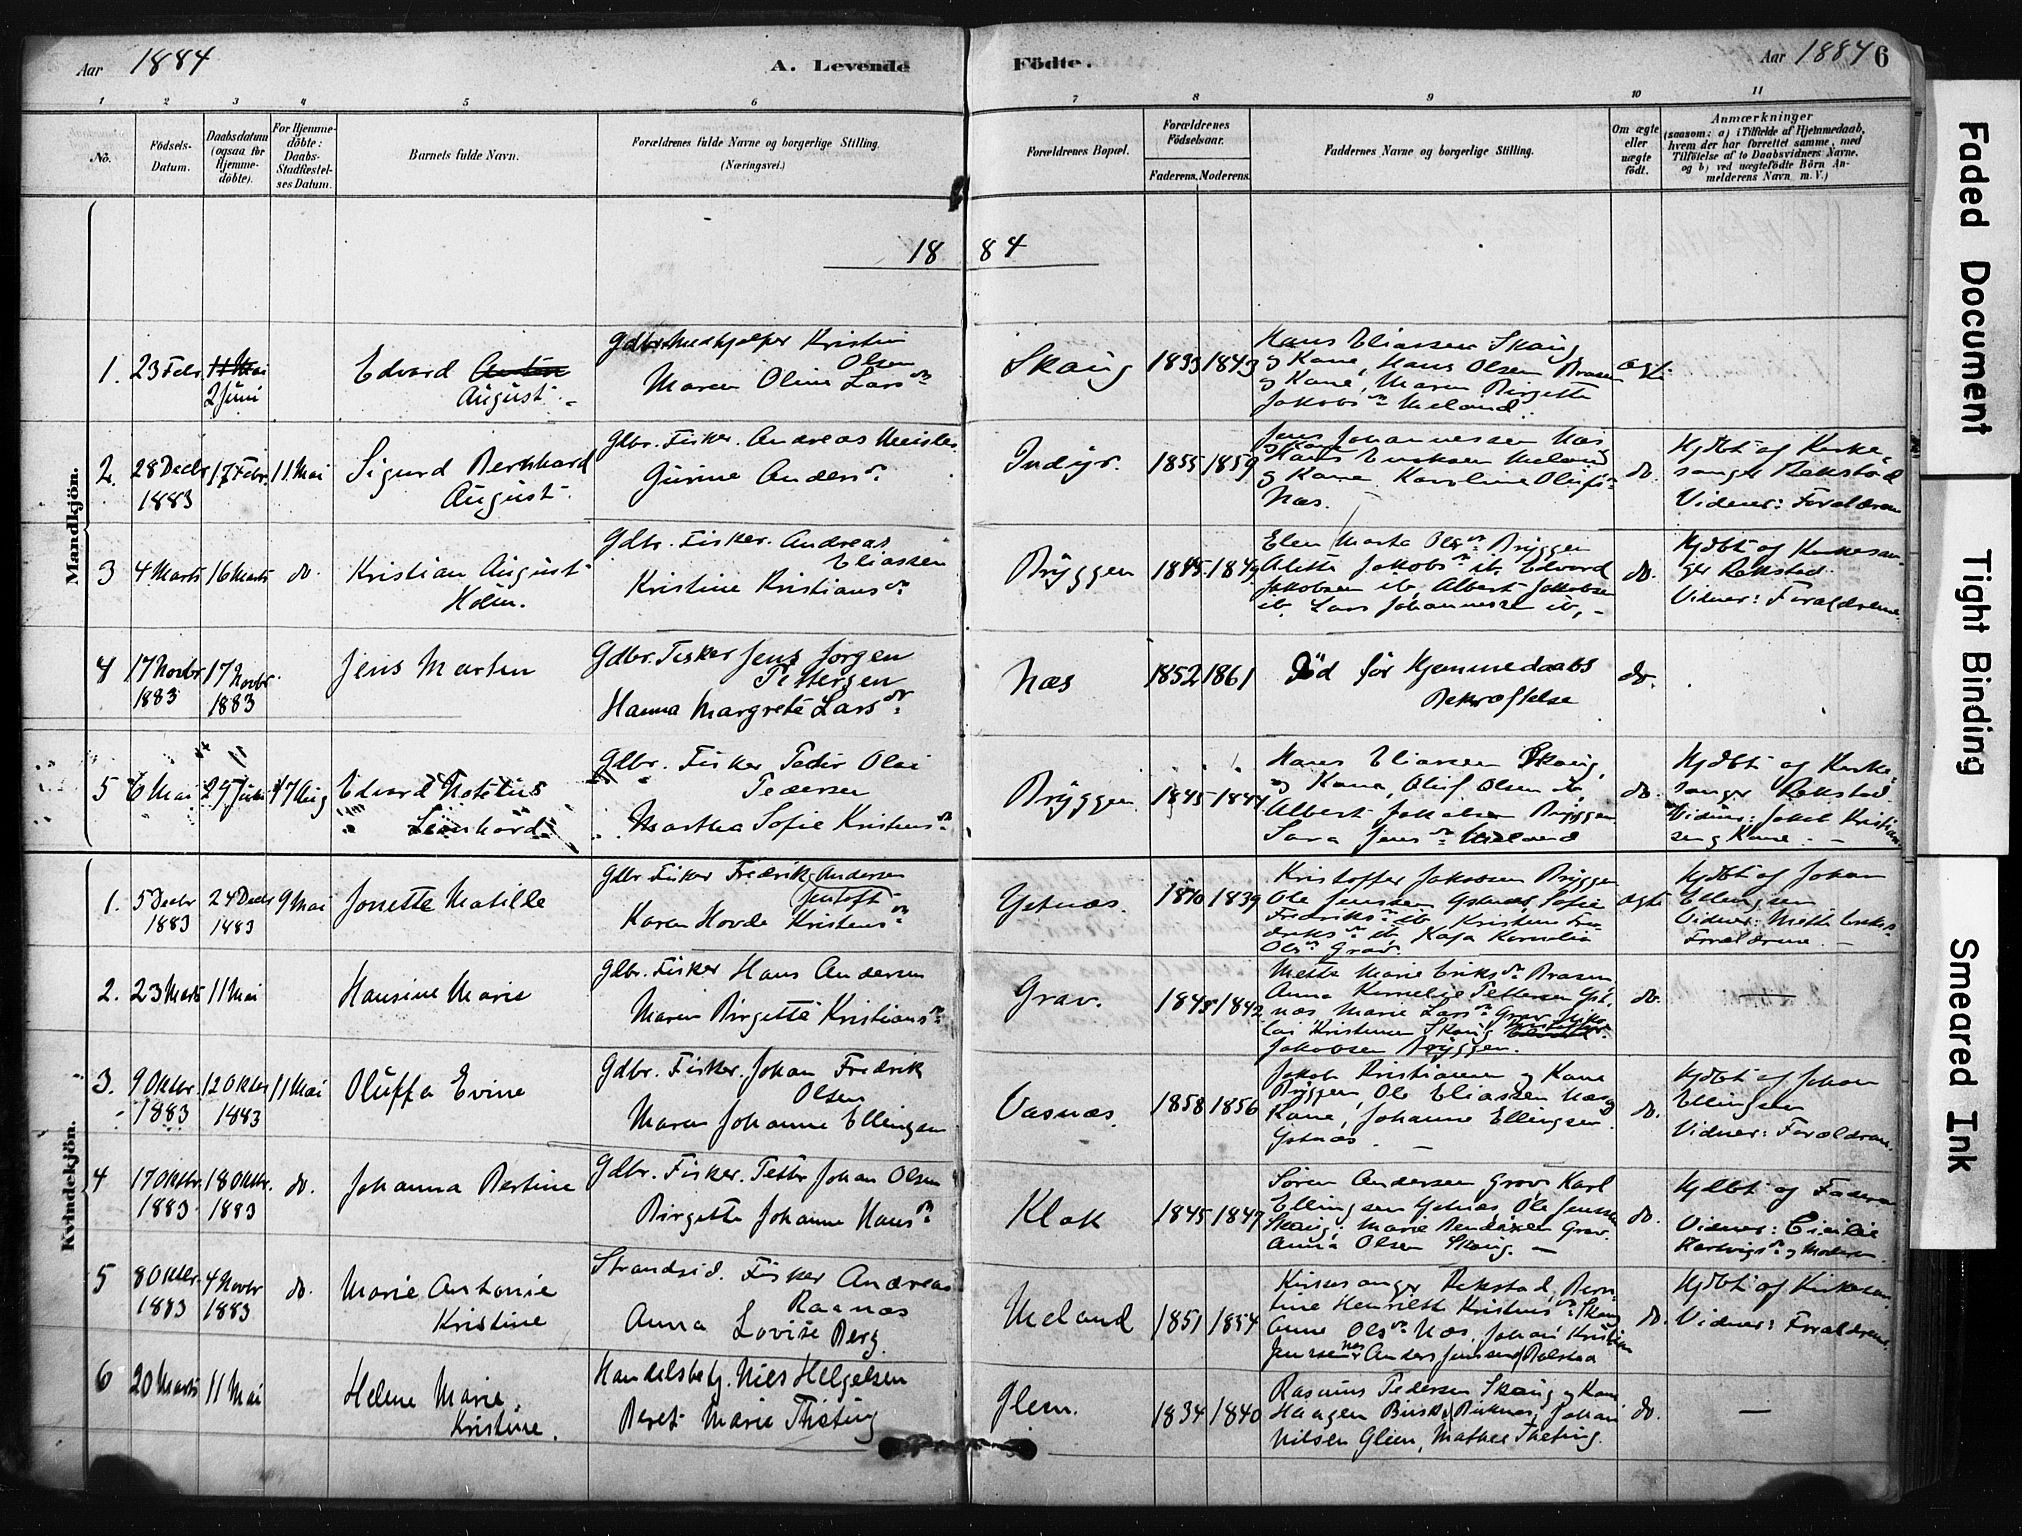 Aar 1884 A. Levende Födte. Aar 1884 6
1 2 3 4 5 6 7 8 9 10 11
No.
Födsels-
Datum.
Daabsdatum
(ogsaa for
Hjemme-
döbte).
For Hjemme-
döbte:
Daabs-
Stadfæstel-
ses Datum.
Barnets fulde Navn.
Forældrenes fulde Navne og borgerlige Stilling.
(Næringsvei.)
Forældrenes Bopæl.
Forældrenes
Födselsaar.
Faderens. Moderens.
Faddernes Navne og borgerlige Stilling.
Om ægte
eller
uægte
födt.
Anmærkninger
(saasom: a) i Tilfælde af Hjemmedaab,
hvem der har forrettet samme, med
Tilföielse af to Daabsvidners Navne,
og b) ved uægtefödte Börn An-
melderens Navn m. V.)
1884
Mandkjön.
1. 23 Febr. 11 Mai
2 Juni
Edvard
August
Gdbr. Medhjelper Kristen
Olsen
Maren Oline Larsdr.
Skaug 1833 1843
Hans Eliassen Skaug
og Kone, Hans Olsen Brasen
og Kone, Maren Birgitte
Jakobsdr. Meland.
ægte
2. 28 Decbr 17 Febr. 11 Mai
1883
Sigurd Bernhard
August
Gdbr. Fisker. Andreas
Gurine Andersdr.
Indyr. 1855 1859
Jens Johannessen Næs
og Kone
Hans Meland
og Kone Karoline
Næs.
do.
Hjdbt af Kirke-
sanger Rekstad
Vidner: Forældrene
3 4 Marts 16 Marts do.
Kristian August
Holm.
Gdbr. Fisker. Andreas
Eliassen
Kristine Kristiansdr.
Bryggen 1845 1849
Elen Marta Olsdr. Bryggen
Alette Jakobsdr. ib. Edvard
Jakobsen ib, Albert Jakobsen
ib. Lars Johannessen ib, -
do.
Hjdbt af Kirkesan-
ger Rekstad.
Vidner: Forældrene
4 17 Novbr 17 Novbr
1883 1883
Jens Marten
Gdbr. Fisker Jens Jörgen
Pettersen
Hanna Margrete Larsdr.
Næs 1852 1861
Död för Hjemmedaabs
Bekræftelse
do.
5 6 Mai 29 Juni 17 Aug
Edvard
Leonhard
Gdbr. Fisker Peder Olai
Pedersen
Martha Sofie Kristensdr.
Bryggen 1845 1844
Hans Eliassen Skaug,
og Kone, Oluf Olsen ib,
Albert Jakobsen Bryggen
Sara Jensdr. Meland
do.
Hjdbt af Kirke-
sanger Rekstad.
Vidner: Jakob Kristian
sen og Kone. -
Kvindekjön.
1. 5 Decbr 24 Decbr 9 Mai
1883 1883
Jonette Matille
Gdbr. Fisker Fredrik Andersen
Jentoft
Karen Hovde Kristensdr.
Ystnæs. 1840 1839
Kristoffer Jakobsen Bryggen
Ole Jenssen Ystnæs, Sofie
Fredriksdr. ib Kristine Fre-
driksdr. ib Kaja Kornelia
Olsdr. Grav.
ægte
Hjdbt af Johan
Ellingsen
Vidner: Mette Eriks.
Forældrene. -
2. 23 Marts 11 Mai
Hansine Marie
Gdbr. Fisker Hans Andersen
Maren Birgette Kristiansdr.
Grav. 1845 1842
Mette Marie Eriksdr. Brasen
Anna Kornelie Pettersen Yst-
næs Marie Larsdr. Grav Niko-
lai Kristensen Skaug
Jakobsen Bryggen.
do. —
3. 9 Oktbr. 12 Oktbr 11 Mai
1883 1883
Oluffa Evine
Gdbr. Fisker. Johan Fredrik
Olsen
Maren Johanne Ellingsen
Vasnæs. 1858 1856
Jakob Kristiansen og Kone
Bryggen, Ole Eliassen Næs og
Kone, Johanne Ellingsen
Ystnæs -
do.
Hjdbt af Johan
Ellingsen
Vidner: Forældrene
4 17 Oktbr. 18 Oktbr. do.
1883 1883
Johanna Bertine
Gdbr. Fisker. Petter Johan Olsen
Birgette Johanne Hansdr.
Klok 1845 1847
Sören Andersen Grav Karl
Ellingsen Ystnæs, Ole Jenssen
Skaug, Marie Bendixen Grav.
Anna Olsen Skaug. -
do.
Hjdbt af Faderen
Vidner: Cecilie
Hartvigsdr. og Moderen
5 8 Oktbr. 4 Novbr do.
1883 1883
Marie Antonie
Kristine
Strandsid. Fisker Andreas
Raanæs
Anna Lovise Berg.
Meland 1851 1854
Kirkesanger Rekstad, Bern-
tine Henriette Kristensdr. Skaug
Anne Olsdr. Næs. Johan Kristian
Jenssen Næs Anders Jenssen
do.
Hjdbt af Kirkesan.
Vidner: Forældrene
6 20 Marts 11 Mai
Helene Marie
Kristine.
Handelsbetj. Niels Helgesen
Beret Marie Thieting
Glem. 1834 1840
Rasmus Pedersen Skaug og Kone
Haagen Johan
Nilsen Glem, Mathea Thieting.
do. —
Faded Document
Tight Binding
Smeared Ink